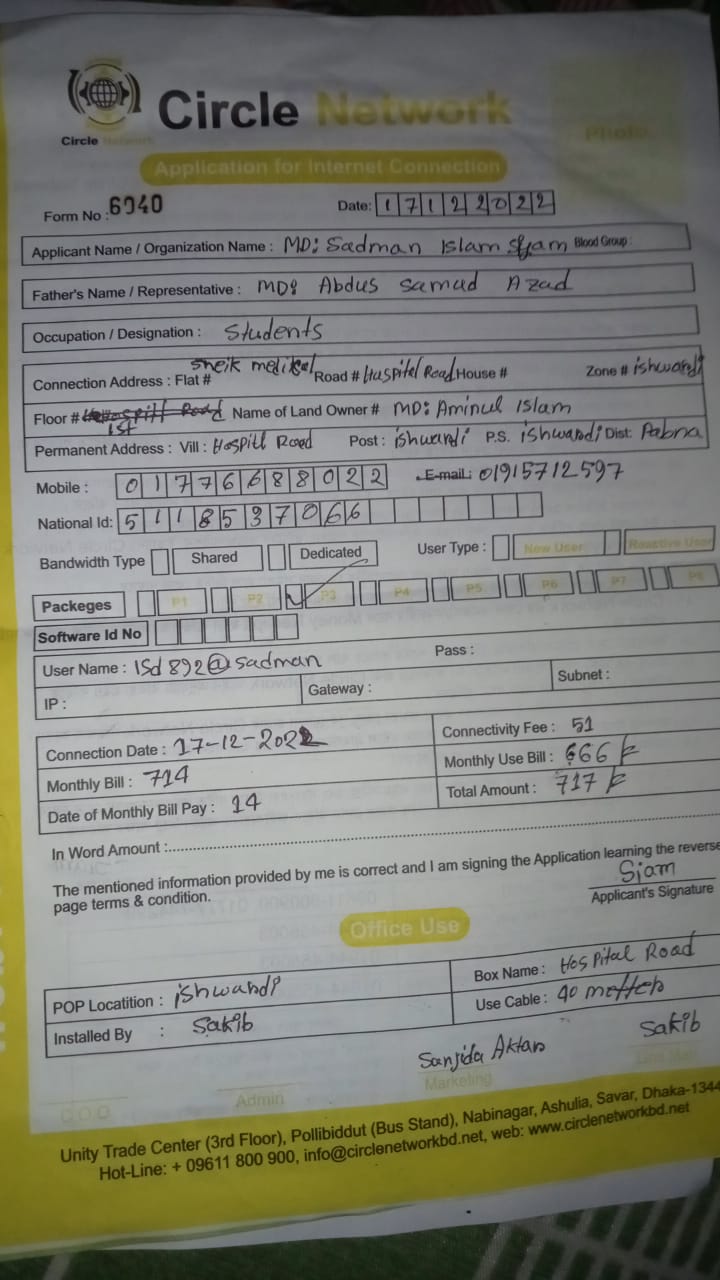 Circle Network
Circle Network
Photo
Application for Internet Connection
Form No : 6940
Date: 17122022
Applicant Name / Organization Name : MD: Sadman Islam Siam Blood Group :
Father's Name / Representative : MD: Abdus Samad Azad
Occupation / Designation : Students
Connection Address : Flat # Sheik medikal Road # Huspitel Road House # Zone # ishwardi
Floor # 1st Name of Land Owner # MD: Aminul Islam
Permanent Address : Vill : Hospitl Road Post : ishwardi P.S. ishwardi Dist: Pabna
Mobile : 01776688022 E-mail : 01915712597
National Id: 5118537066
Bandwidth Type Shared Dedicated User Type : New User Reactive User
Packeges P1 P2 P3 P4 P5 P6 P7 P8
Software Id No
User Name : ISd892@sadman Pass :
IP : Gateway : Subnet :
Connection Date : 17-12-2022 Connectivity Fee : 51
Monthly Bill : 714 Monthly Use Bill : 666
Date of Monthly Bill Pay : 14 Total Amount : 717
In Word Amount :
The mentioned information provided by me is correct and I am signing the Application learning the reverse
page terms & condition.
Siam
Applicant's Signature
Office Use
POP Locatition : ishwardi Box Name : Hospital Road
Installed By : Sakib Use Cable : 40 metter
Sanjida Aktar Sakib
C.O.O Admin Marketing Line Man
Unity Trade Center (3rd Floor), Pollibiddut (Bus Stand), Nabinagar, Ashulia, Savar, Dhaka-1344
Hot-Line: + 09611 800 900, info@circlenetworkbd.net, web: www.circlenetworkbd.net